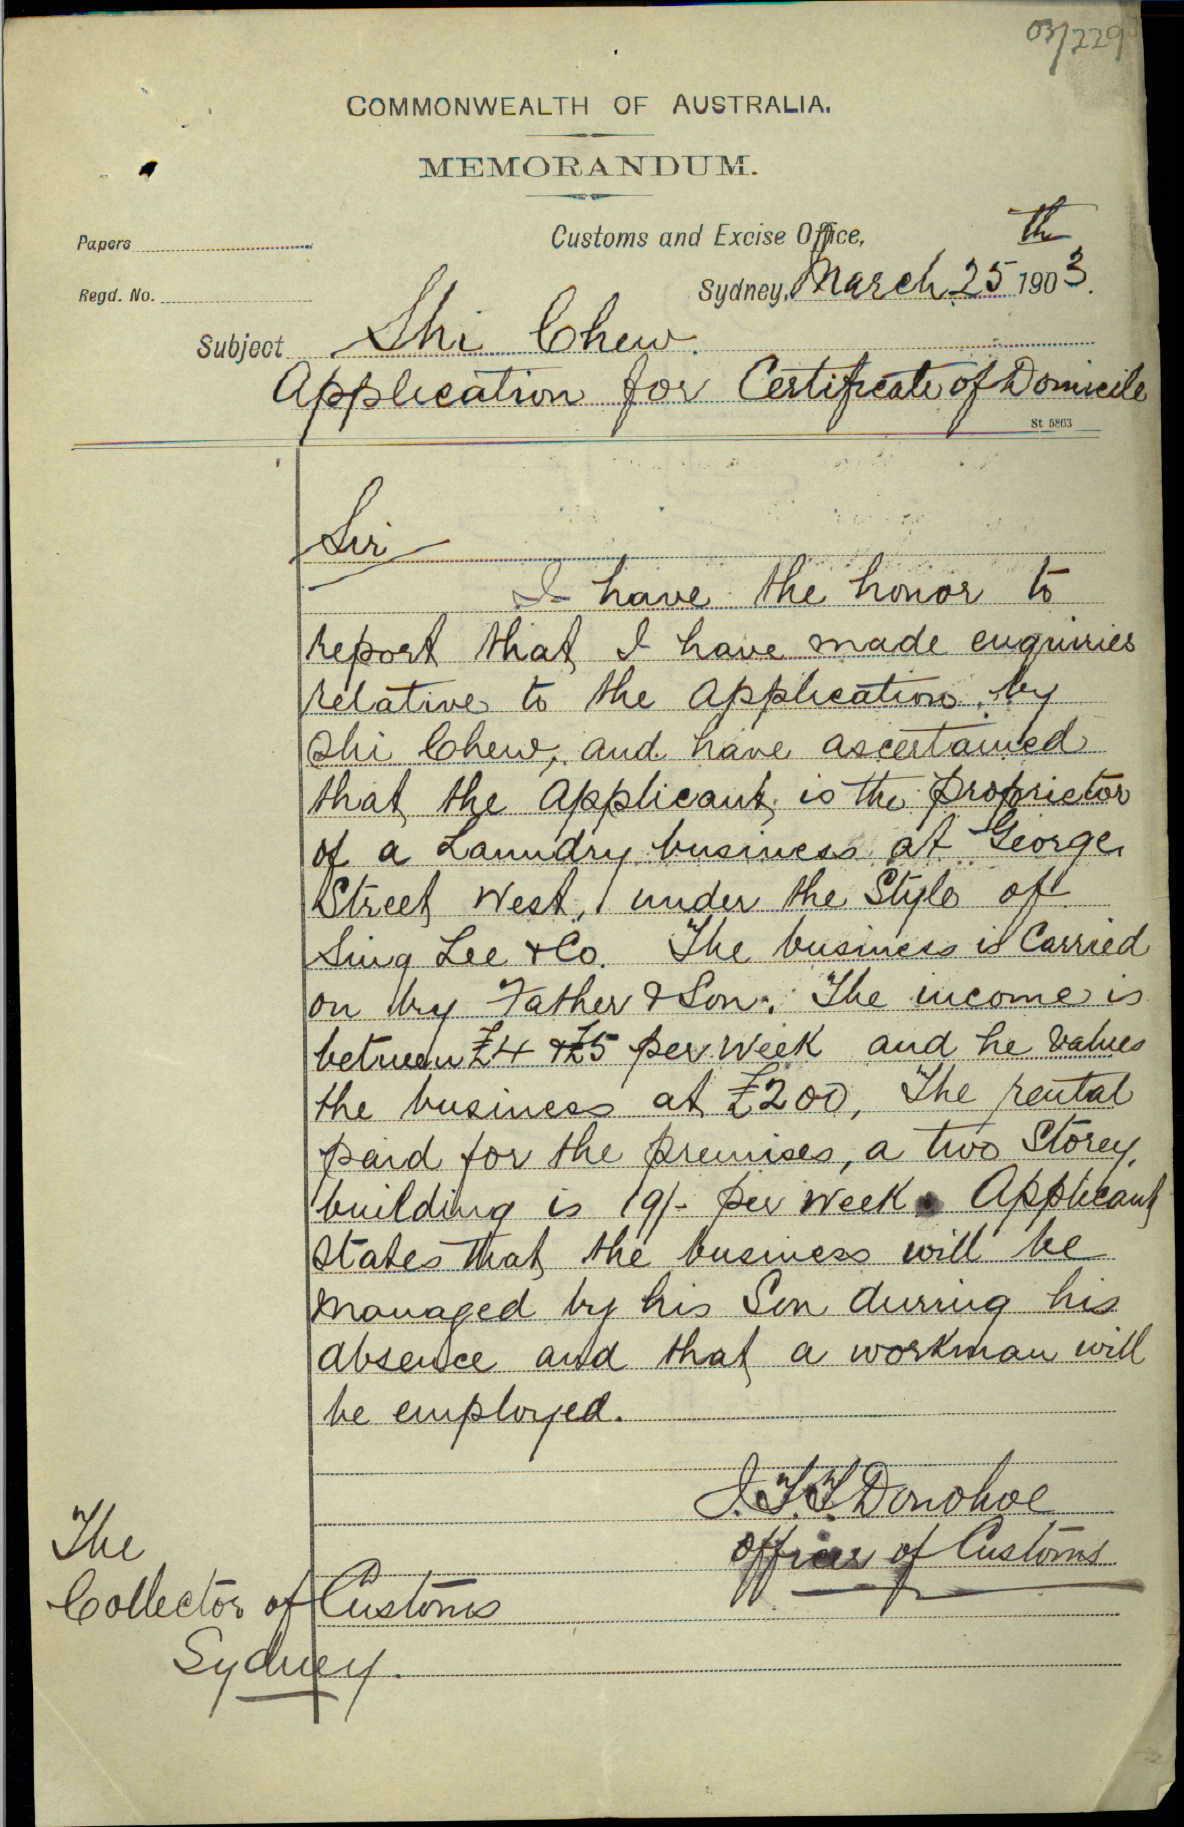 03/229
COMMONWEALTH OF AUSTRALIA.
MEMORANDUM.
Papers
Customs and Excise Office,
Regd. No.
Sydney, March 25th 1903.
Subject Shi Chew.
Application for Certificate of Domicile
St 5863
Sir
I have the honor to
report that I have made enquiries
relative to the application by
Shi Chew, and have ascertained
that the Applicant is the proprietor
of a Laundry business at George
Street West, under the Style of
Sing Lee & Co. The business is Carried
on by Father & Son. The income is
between £4 & £5 per week and he values
the business at £200, The rental
paid for the premises, a two Storey,
building is 19/- per week. Applicant
states that the business will be
managed by his Son during his
absence and that a workman will
be employed.
J.T.T. Donohoe
Officer of Customs
The
Collector of Customs
Sydney.